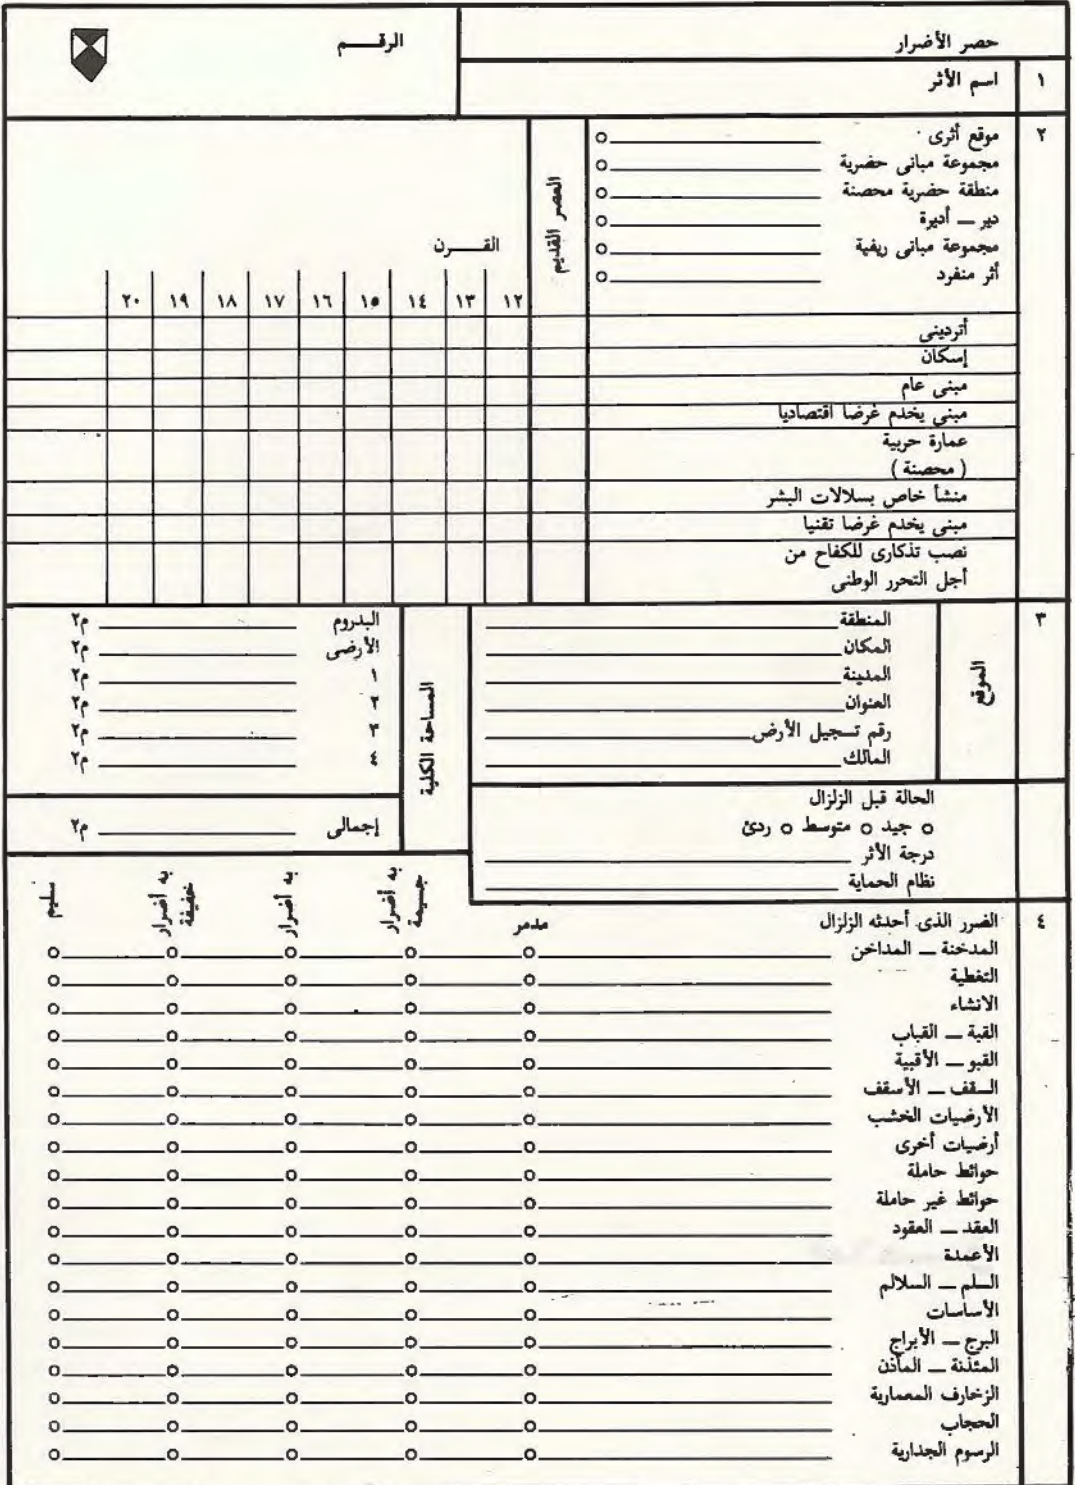 حصر الأضرار
الرقـــم
١ اسم الأثر
٢ موقع أثرى
مجموعة مبانى حضرية
منطقة حضرية محصنة
دير ــ أديرة
مجموعة مبانى ريفية
أثر منفرد
العصر القديم
القـــرن
١٢ ١٣ ١٤ ١٥ ١٦ ١٧ ١٨ ١٩ ٢٠
أثردينى
إسكان
مبنى عام
مبنى يخدم غرضا اقتصاديا
عمارة حربية
( محصنة )
منشأ خاص بسلالات البشر
مبنى يخدم غرضا تقنيا
نصب تذكارى للكفاح من
أجل التحرر الوطنى
٣ الموقع
المنطقة
المكان
المدينة
العنوان
رقم تسجيل الأرض
المالك
المساحة الكلية
البدروم م٢
الأرضى م٢
١ م٢
٢ م٢
٣ م٢
٤ م٢
إجمالى م٢
الحالة قبل الزلزال
o جيد o متوسط o ردئ
درجة الأثر
نظام الحماية
٤ الضرر الذى أحدثه الزلزال
مدمر
به أضرار جسيمة
به أضرار
به أضرار خفيفة
سليم
المدخنة ــ المداخن
التغطية
الانشاء
القبة ــ القباب
القبو ــ الأقبية
السقف ــ الأسقف
الأرضيات الخشب
أرضيات أخرى
حوائط حاملة
حوائط غير حاملة
العقد ــ العقود
الأعمدة
السلم ــ السلالم
الأساسات
البرج ــ الأبراج
المئذنة ــ المآذن
الزخارف المعمارية
الحجاب
الرسوم الجدارية